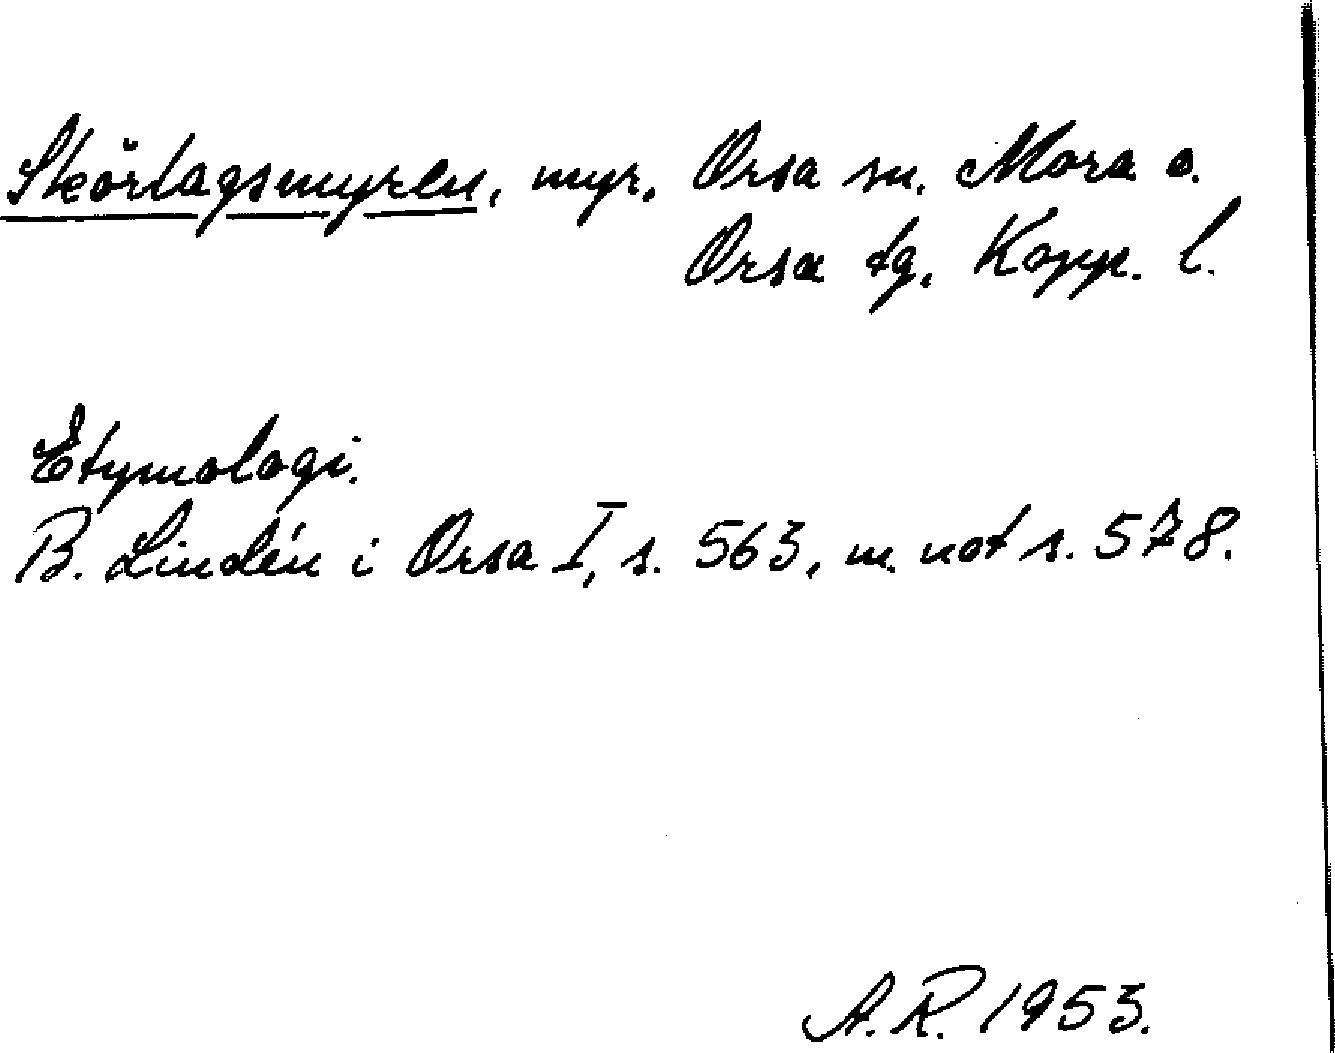 Skörlagsmyren, myr, Orsa sn. Mora o.
Orsa tg, Kopp. l.
Etymologi.
B. Lindén i Orsa I, s. 563, m. not s. 578.
A.R. 1953.